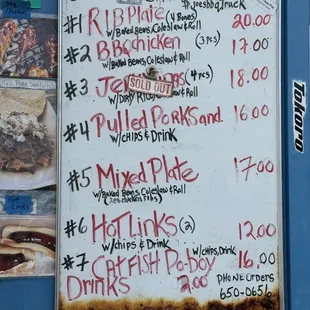 #JoesBBQTruck
#1 RIB Plate (4 Bones) 20.00
w/Baked Beans, Coleslaw & Roll
#2 BBQ chicken (3 pcs) 17.00
w/Baked Beans, Coleslaw & Roll
#3 (4 pcs) 18.00
SOLD OUT
#4 Pulled Pork Sand. 16.00
w/chips & Drink
#5 Mixed Plate 17.00
w/Baked Beans, Coleslaw & Roll
#6 Hot Links (2) 12.00
w/chips & Drink
#7 Catfish Po-Boy w/chips, Drink 16.00
Drinks 2.00
Phone Orders
650-0656
Takoro